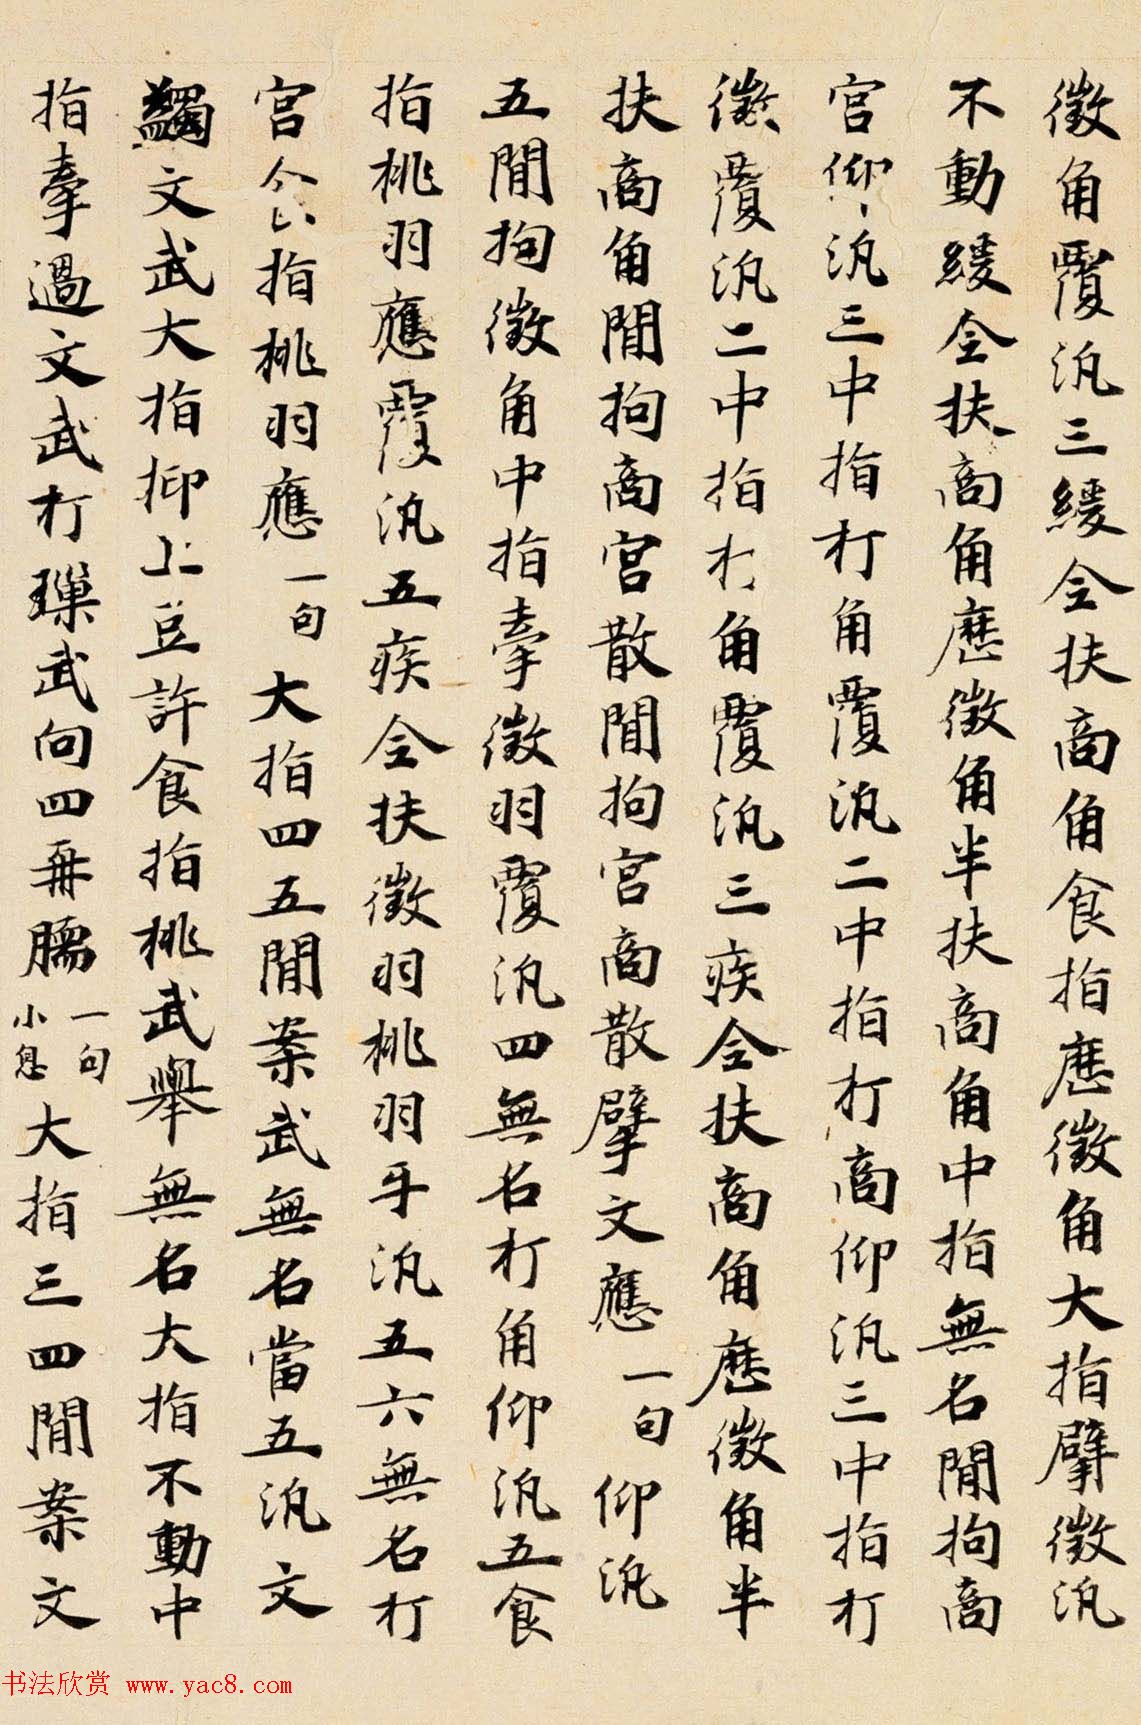 徵角覆汎三緩全扶商角食指歷徵角大指擘徵汎
不動緩全扶商角歷徵角半扶商角中指無名間拘商
宮仰汎三中指打角覆汎二中指打商仰汎三中指打
徵覆汎二中指打角覆汎三疾全扶商角歷徵角半
扶商角間拘商宮散間拘宮商散擘文應一句仰汎
五間拘徵角中指牽徵羽覆汎四無名打角仰汎五食
指桃羽應覆汎五疾全扶徵羽桃羽牙汎五六無名打
宮食指桃羽應一句大指四五間案武無名當五汎文
蠲文武大指抑上豆許食指桃武舉無名大指不動中
指牽過文武打武向四冊臑一句小息大指三四間案文
书法欣赏 www.yac8.com